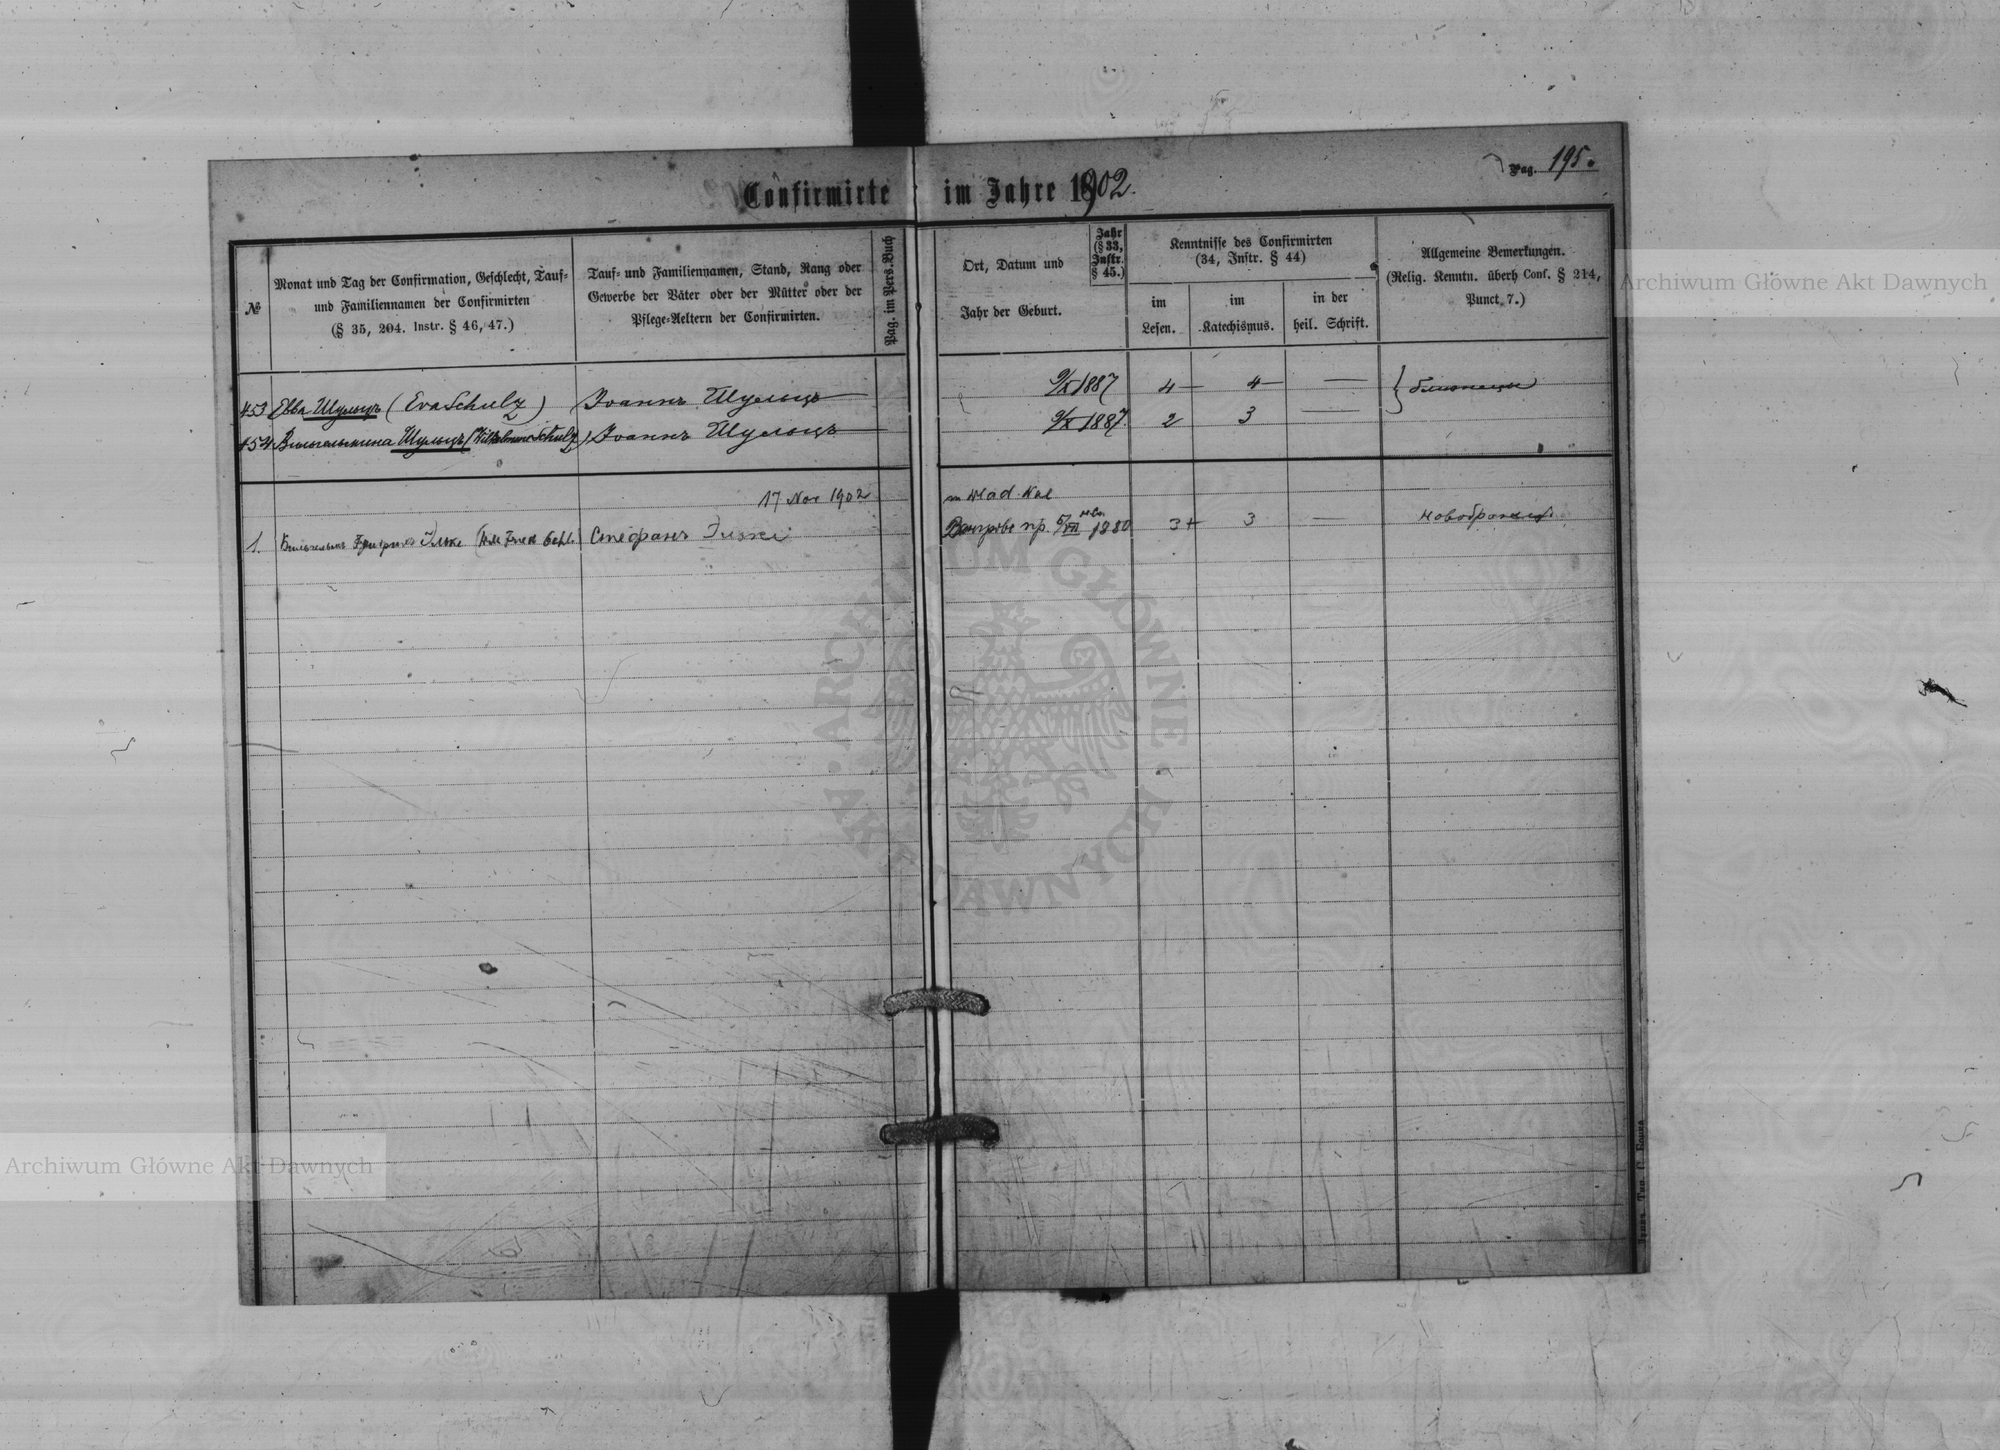 Pag. 195.
Confirmirte im Jahre 1902.
№
Monat und Tag der Confirmation, Geschlecht, Tauf-
und Familiennamen der Confirmirten
(§ 35, 204. Instr. § 46, 47.)
Tauf- und Familiennamen, Stand, Rang oder
Gewerbe der Väter oder der Mütter oder der
Pflege-Aeltern der Confirmirten.
Pag. im Pers.-Buch
Ort, Datum und
Jahr der Geburt.
Jahr
(§ 33,
Instr.
§ 45.)
Kenntnisse des Confirmirten
(34, Instr. § 44)
im
Lesen.
im
Katechismus.
in der
heil. Schrift.
Allgemeine Bemerkungen.
(Relig. Kenntn. überh Conf. § 214,
Punct 7.)
453 Евва Шульцъ (Eva Schulz) Іоаннъ Шульцъ 9/X 1887 4 4 —
454 Вильгельмина Шульцъ (Wilhelmine Schulz) Іоаннъ Шульцъ 9/X 1887. 2 3 —
17 Nov 1902
1. Вильгельмъ Стефанъ 1880 3+ 3 —
Тип.
Archiwum Główne Akt Dawnych
Archiwum Główne Akt Dawnych
· ARCHIWUM GŁÓWNE · AKT DAWNYCH